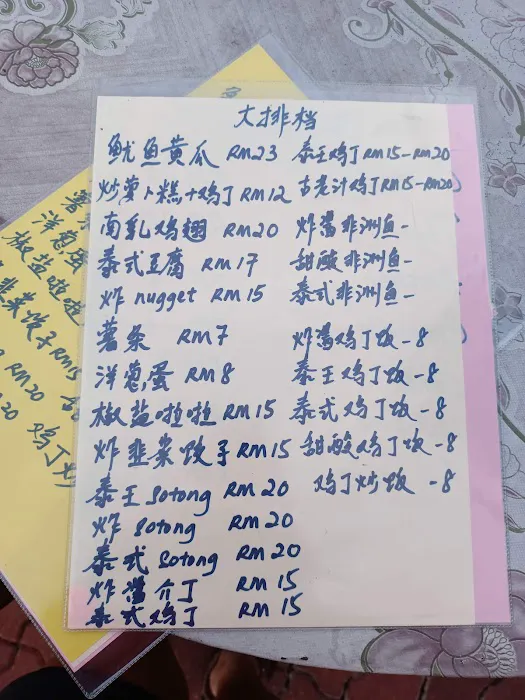 大排档
鱿鱼黄瓜 RM23
炒萝卜糕+鸡丁 RM12
南乳鸡翅 RM20
泰式豆腐 RM17
炸 nugget RM15
薯条 RM7
洋葱蛋 RM8
椒盐啦啦 RM15
炸韭菜饺子 RM15
泰王 Sotong RM20
炸 Sotong RM20
泰式 Sotong RM20
炸酱介丁 RM 15
泰式鸡丁 RM 15
泰王鸡丁 RM15-RM20
古老汁鸡丁 RM15-RM20
炸酱非洲鱼-
甜酸非洲鱼-
泰式非洲鱼-
炸酱鸡丁饭-8
泰王鸡丁饭-8
泰式鸡丁饭-8
甜酸鸡丁饭-8
鸡丁炒饭 -8
薯
洋葱蛋
椒盐啦啦
韭菜饺子 RM15
RM20
20
鸡丁炒